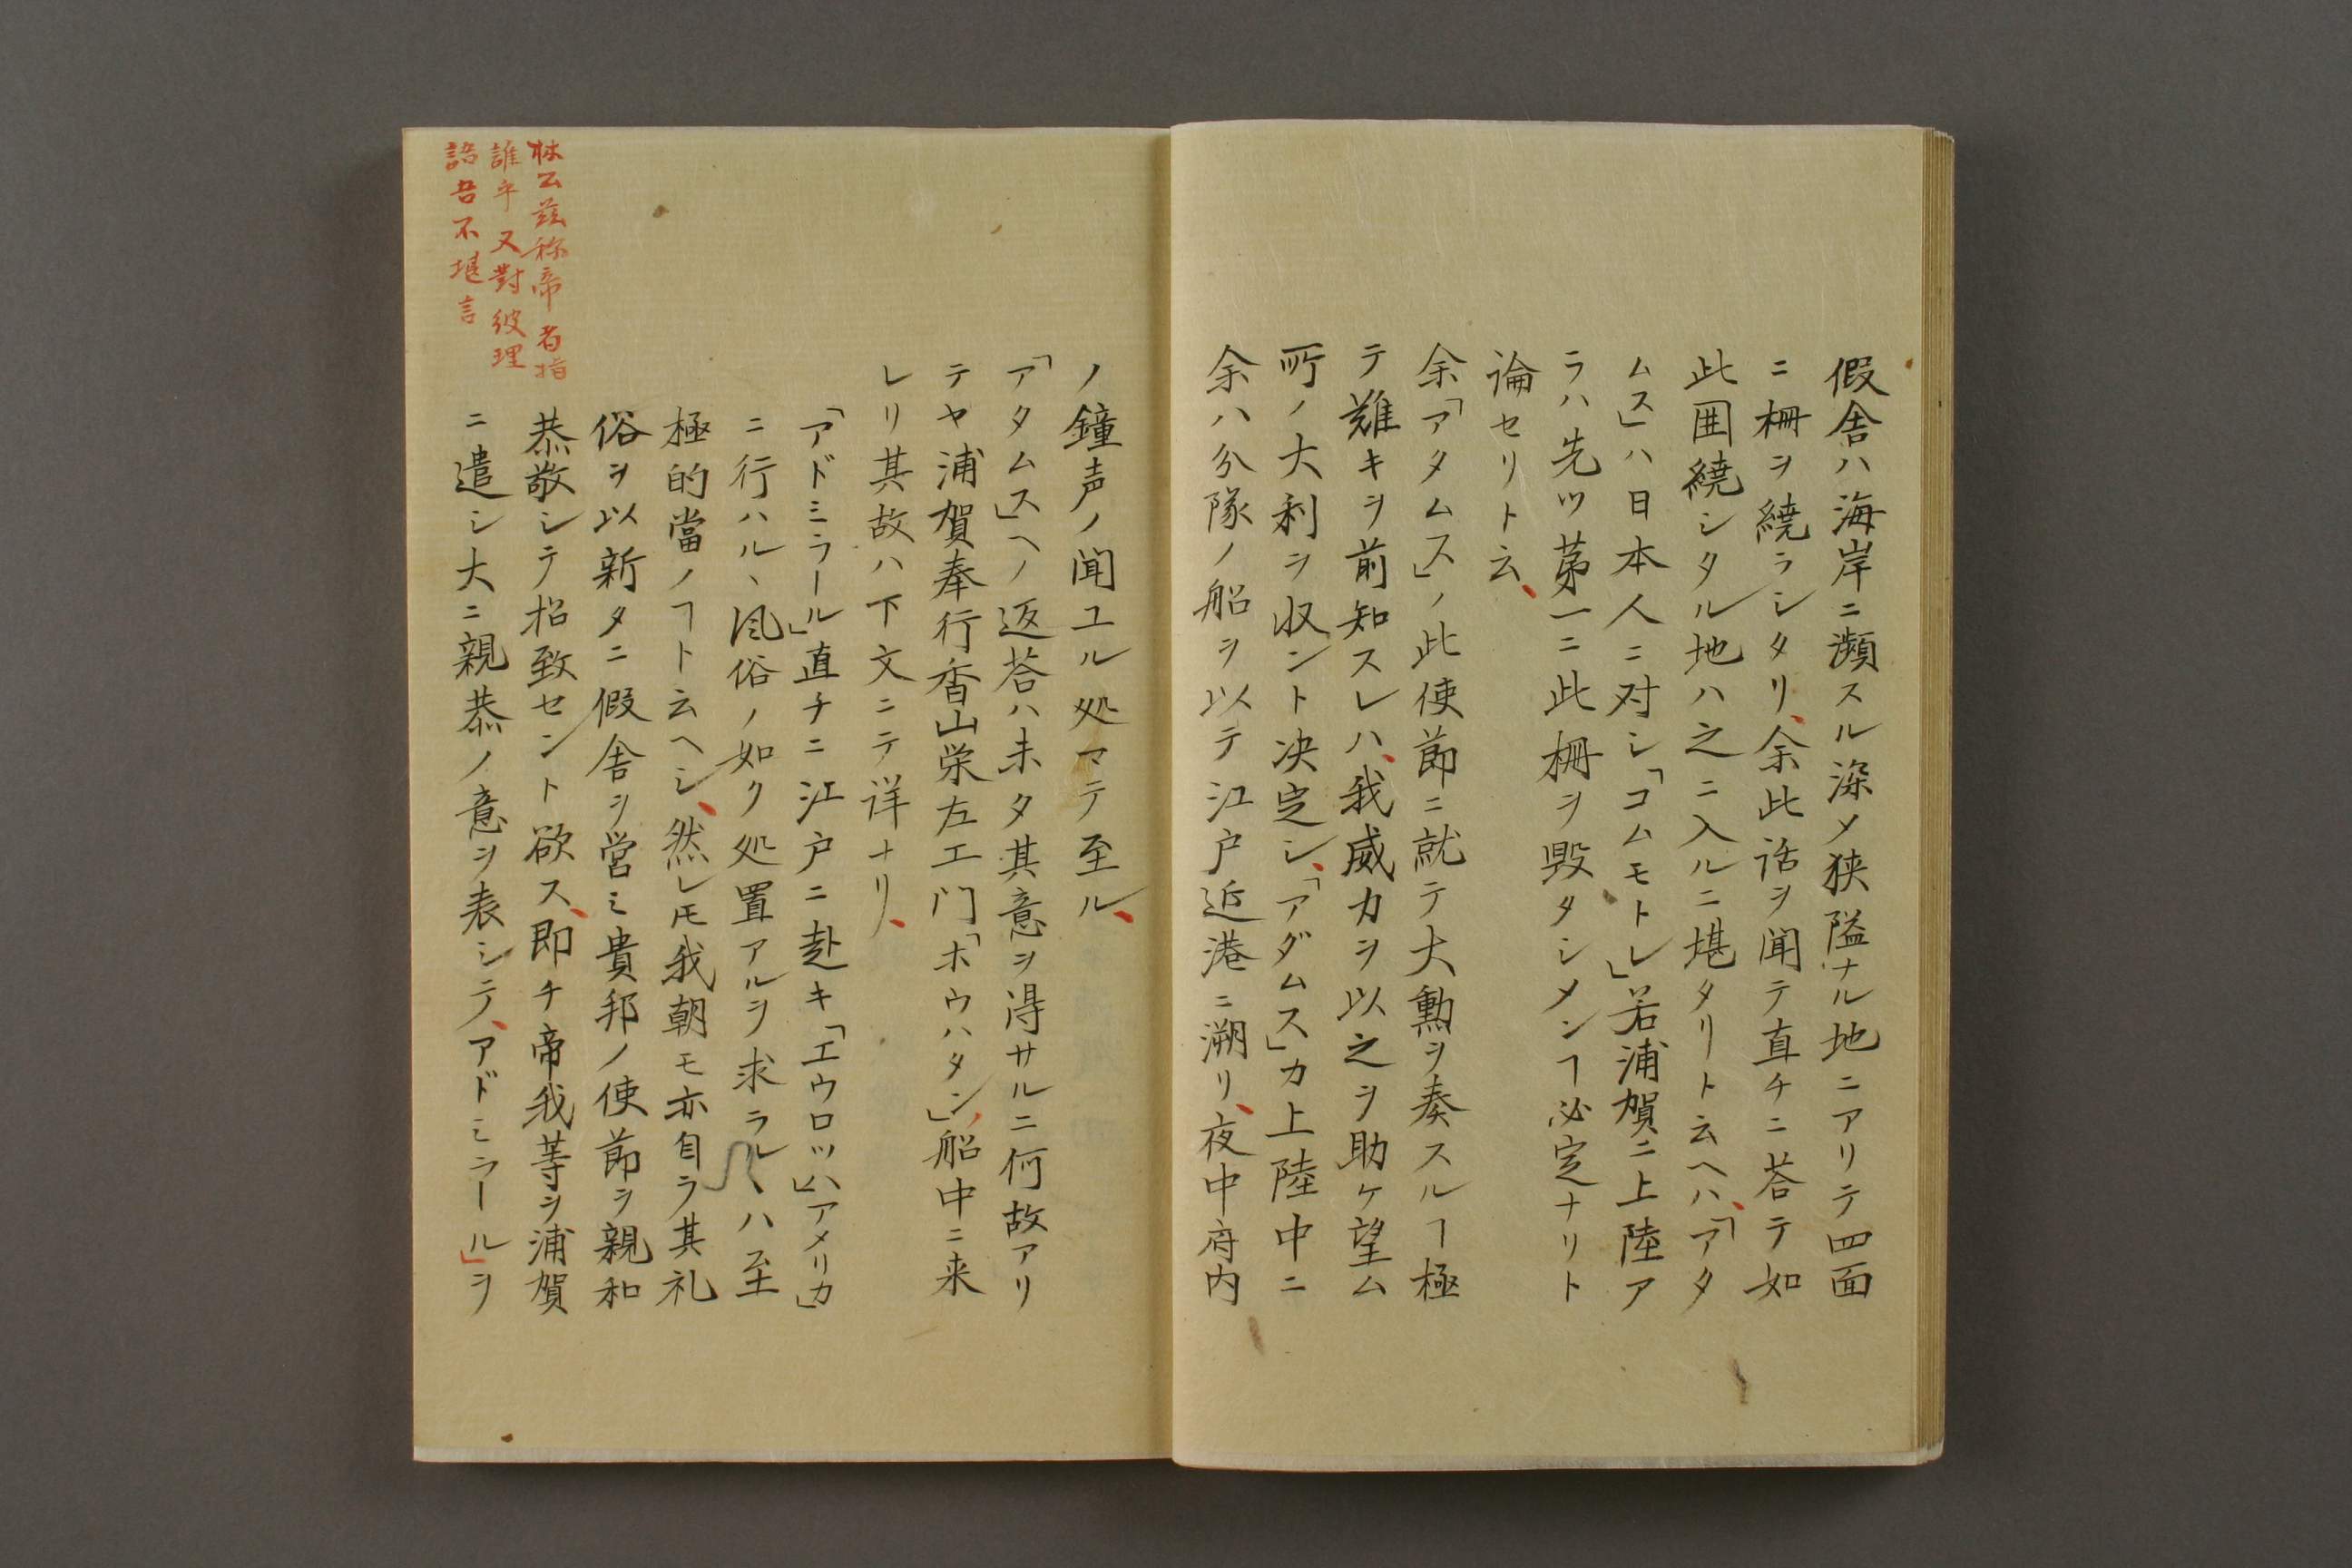 假舎ハ海岸ニ瀕スル深メ狭隘ナル地ニアリテ四面
ニ柵ヲ繞ラシタリ、余此話ヲ聞テ直チニ荅テ如
此囲繞シタル地ハ之ニ入ルニ堪タリト云ヘハ、「アタ
ムス」ハ日本人ニ対シ「コムモトレ」若浦賀ニ上陸ア
ラハ先ツ苐一ニ此柵ヲ毀タシメンヿ必定ナリト
論セリト云、
余「アタムス」ノ此使節ニ就テ大勲ヲ奏スルヿ極
テ難キヲ前知スレハ、我威力ヲ以之ヲ助ケ望ム
所ノ大利ヲ収ント决定シ、「アダムス」カ上陸中ニ
余ハ分隊ノ船ヲ以テ江戸近港ニ溯リ、夜中府内
ノ鐘声ノ聞ユル処マテ至ル、
「アタムス」ヘノ返荅ハ未タ其意ヲ得サルニ何故アリ
テヤ浦賀奉行香山栄左エ门「ホウハタン」船中ニ来
レリ其故ハ下文ニテ详ナリ、
「アドミラール」直チニ江戸ニ赴キ「エウロッハ」「アメリカ」
ニ行ハルヽ风俗ノ如ク処置アルヲ求ラルヽハ至
極的當ノヿト云ヘシ、然レ𪜈我朝モ亦自ラ其礼
俗ヲ以新タニ假舎ヲ営ミ貴邦ノ使節ヲ親和
恭敬シテ招致セント欲ス、即チ帝我等ヲ浦賀
ニ遣シ大ニ親恭ノ意ヲ表シテ、アドミラール」ヲ
林公茲称帝者指
誰乎又對彼理
語吾不堪言